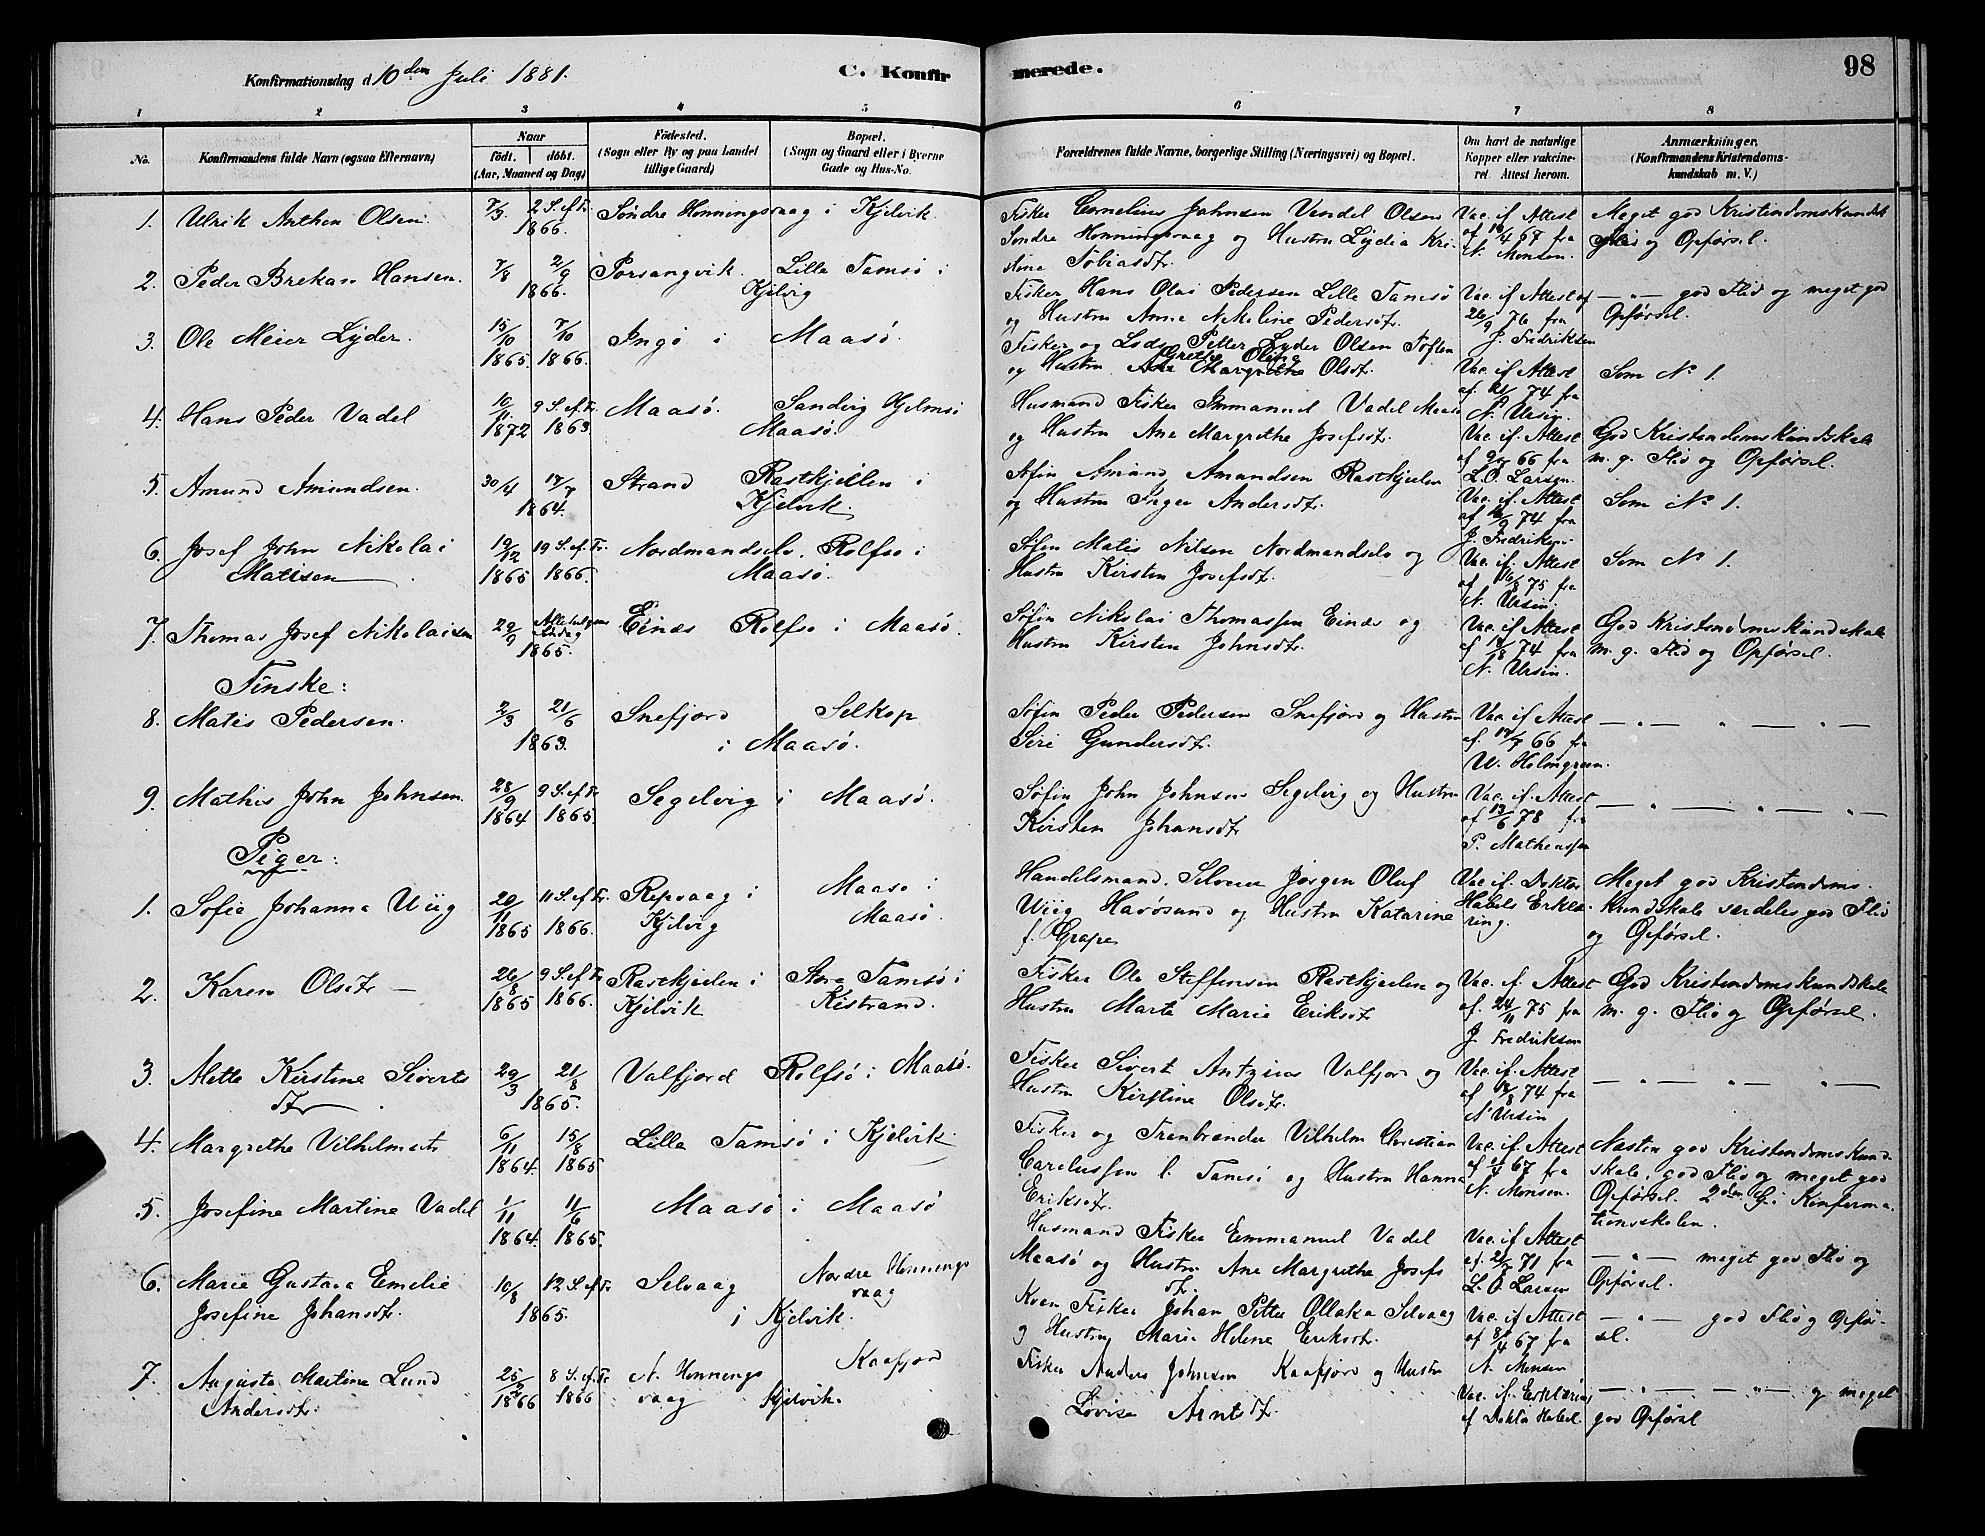 Konfirmationsdag d. 10den Juli 1881.
C. Konfirmerede.
98
1 2 3 4 5 6 7 8
No.
Konfirmandens fulde Navn (ogsaa Efternavn)
Naar
födt. döbt.
(Aar, Maaned og Dag)
Födested.
(Sogn eller By og paa Landet
tillige Gaard)
Bopæl.
(Sogn og Gaard eller i Byerne
Gade og Hus-No.
Forældrenes fulde Navne, borgerlige Stilling (Næringsvei) og Bopæl.
Om havt de naturlige
Kopper eller vakcine-
ret. Attest herom.
Anmærkninger.
(Konfirmandens Kristendoms-
kundskab m. V.)
1. Ulrik Anthon Olsen. 7/3 2 S. ef Tr. 1866. Söndre Honningsvaag i Kjelvik.
Fisker Cornelius Johnsen Vendel Olsen
Söndre Honningsvaag og Hustru Lydia Kri-
stine Tobiasdtr.
Vac. if. Attest
af /4 67 fra
N. Monsen.
Meget god Kristendomskundsk
Flid og Opförsel.
2. Peder Brekan Hansen. 7/8 2/9 1866. Porsangvik. Lille Tamsö i
Kjelvig
Fisker Hans Olai Pedersen Lille Tamsö
og Hustru Anne Nikoline Pedersdtr.
Vac. if Attest af
26/9 76 fra
J. Fredriksen
— " — god Flid og meget god
Opförsel.
3. Ole Meier Lyder. 15/10 1865 7/10 1866. Ingö i Maasö.
Fisker og Lods Petter Lyder Olsen Toften
og Hustru Grethe Oline Olsdtr.
Vac. if. Attest
af. 74 fra
N. Ursin.
Som No 1.
4. Hans Peder Vadel 10/11 1872 9 S. ef. Tr. 1863 Maasö. Sandvig Hjelmsö
Maasö.
Husmand Fisker Immanuel Vadel Maasö
og Hustru Ane Margrethe Josefsdtr.
Vac. if. Attest
af 66 fra
L. O. Larsen.
God Kristendomskundskab
m. g. Flid og Opförsel.
5. Amund Amundsen. 30/4 17/7 1864. Strand Rastkjeilen i
Kjelvik.
Söfin Amund Amundsen Rastkjeilen
og Hustru Inger Andersdtr.
Vac. if. Attest
af /9 74 fra
J. Fredriksen.
Som No 1.
6. Josef John Nikolai
Matisen 19/12 1865 19 S. ef. Tr. 1866. Nordmandselv. Rolfsö i
Maasö.
Söfin Matis Nilsen Nordmandselv og
Hustru Kirsten Josefsdtr.
Vac. if. Attest
af 16/8 75 fra
N. Ursin.
Som No 1.
7. Thomas Josef Nikolaisen 29/9 Allehelgens
Söndag 1865. Einæs Rolfsö i Maasö.
Söfin Nikolai Thomassen Einæs og
Hustru Kirsten Johnsdtr.
Vac. if. Attest
af 14/8 74 fra
N. Ursin.
God Kristendomskundskab
m. g. Flid og Opförsel.
Finske:
8. Matis Pedersen. 2/3 21/6 1863. Snefjord Selkop
i Maasö.
Söfin Peder Pedersen Snefjord og Hustru
Siri Gundersdtr.
Vac. if Attest
af. 17/7 66 fra
W. Holmgreen.
— " — " — " —
9. Mathis John Johnsen. 28/9 1864 9 S. ef. Tr. 1865. Segelvig i Maasö.
Söfin John Johnsen Segelvig og Hustru
Kirsten Johansdtr.
Vac. if. Attest
af 13/6 78 fra
P. Mathiassen
— " — " — " —
Piger:
1. Sofie Johanna Wiig 20/11 1865 11 S. ef. Tr. 1866. Repvaag i
Kjelvig
Maasö i
Maasö.
Handelsmand. Selveier Jørgen Oluf
Wiig Havösund og Hustru Katarine
f. Grape
Vac. if. Doktor
Habels Erklæ-
ring.
Meget god Kristendoms-
kundskab særdeles god Flid
og Opförsel.
2. Karen Olsdtr — 26/8 1865 9 S. ef Tr 1866. Rastkjeilen i
Kjelvik
Store Tamsö i
Kistrand.
Fisker Ole Steffensen Rastkjeilen og
Hustru Marte Marie Eriksdtr.
Vac. if. Attest
af. 24/11 75 fra
J. Fredriksen
God Kristendomskundskab
m. g. Flid og Opförsel.
3. Mette Kirstine Siverts
dtr. 29/3 21/8 1865. Valfjord Rolfsö i Maasö.
Fisker Sivert Antzius Valfjord og
Hustru Kirstine Olsdtr.
Vac. if. Attest
af 14/8 74 fra
N Ursin
— " — " — " —
4. Margrethe Vilhelmsdtr 6/11 1864. 15/8 1865 Lille Tamsö i Kjelvik.
Fisker og Tranbrænder Vilhelm Christian
Careliussen l. Tamsö og Hustru Hanna
Eriksdtr.
Vac. if. Attest
af /4 67 fra
N. Monsen.
Næsten god Kristendomskund-
skab, god Flid og meget god
Opförsel. 2den G. i Konfirma-
tionsskolen.
5. Josefine Martine Vadel 1/11 1864. 11/6 1865. Maasö i Maasö
Husmand Fisker Emmanuel Vadel
Maasö og Hustru Ane Margrethe Josefs
dtr.
Vac. if Attest
af. 71 fra
L. O. Larsen
— " — meget god Flid og
Opförsel.
6. Marie Gustava Emelie
Josefine Johansdtr. 10/8 12 S. ef Tr 1865. Selvaag Nordre Honnings
vaag
i Kjelvik.
Kven Fisker Johan Petter Ollaka Selvaag
og Hustru Maria Helene Eriksdtr.
Vac. if Attest
af /4 67 fra
N. Monsen
— " — god Flid og Opför-
sel.
7. Augusta Martine Lund
Andersdtr. 25/ 1866 8 S. ef. Tr 1866 N. Honnings
vaag
Kaafjord
Kjelvik.
Fisker Anders Johnsen Kaafjord og Hustru
Lovise Arntsdtr.
Vac. if. Erklæring
af Doktor Habel.
— " — — " — og meget
god Opförsel